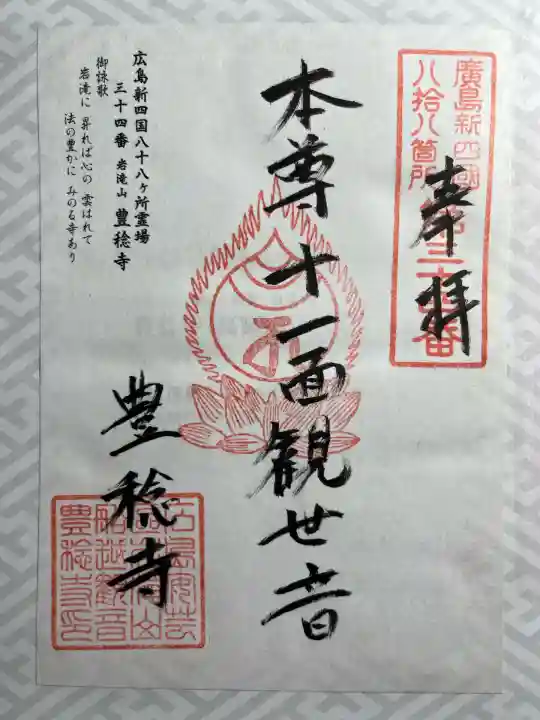 奉拝
廣島新四國
八拾八箇所
第三十四番
本尊十一面観世音
豊稔寺
広島新四国八十八ヶ所霊場
三十四番 岩滝山 豊稔寺
御詠歌
岩滝に 昇れば心の 雲はれて
法の豊かに みのる寺あり
船越観音
豊稔寺印